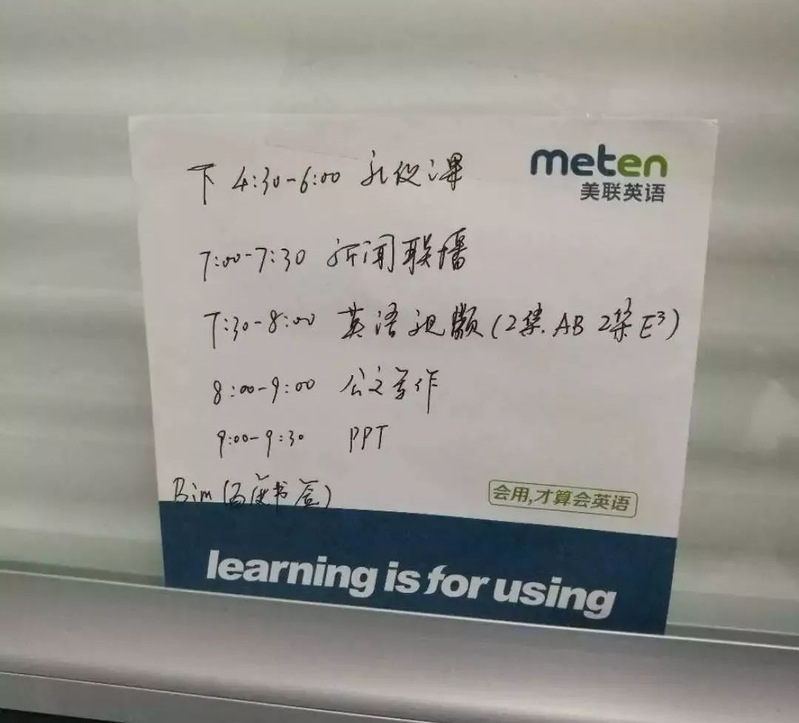 meten
美联英语
下 4:30-6:00 礼仪课
7:00-7:30 新闻联播
7:30-8:00 英语视频(2集.AB 2集E³)
8:00-9:00 公文写作
9:00-9:30 PPT
Bim(百度书签)
会用,才算会英语
learning is for using